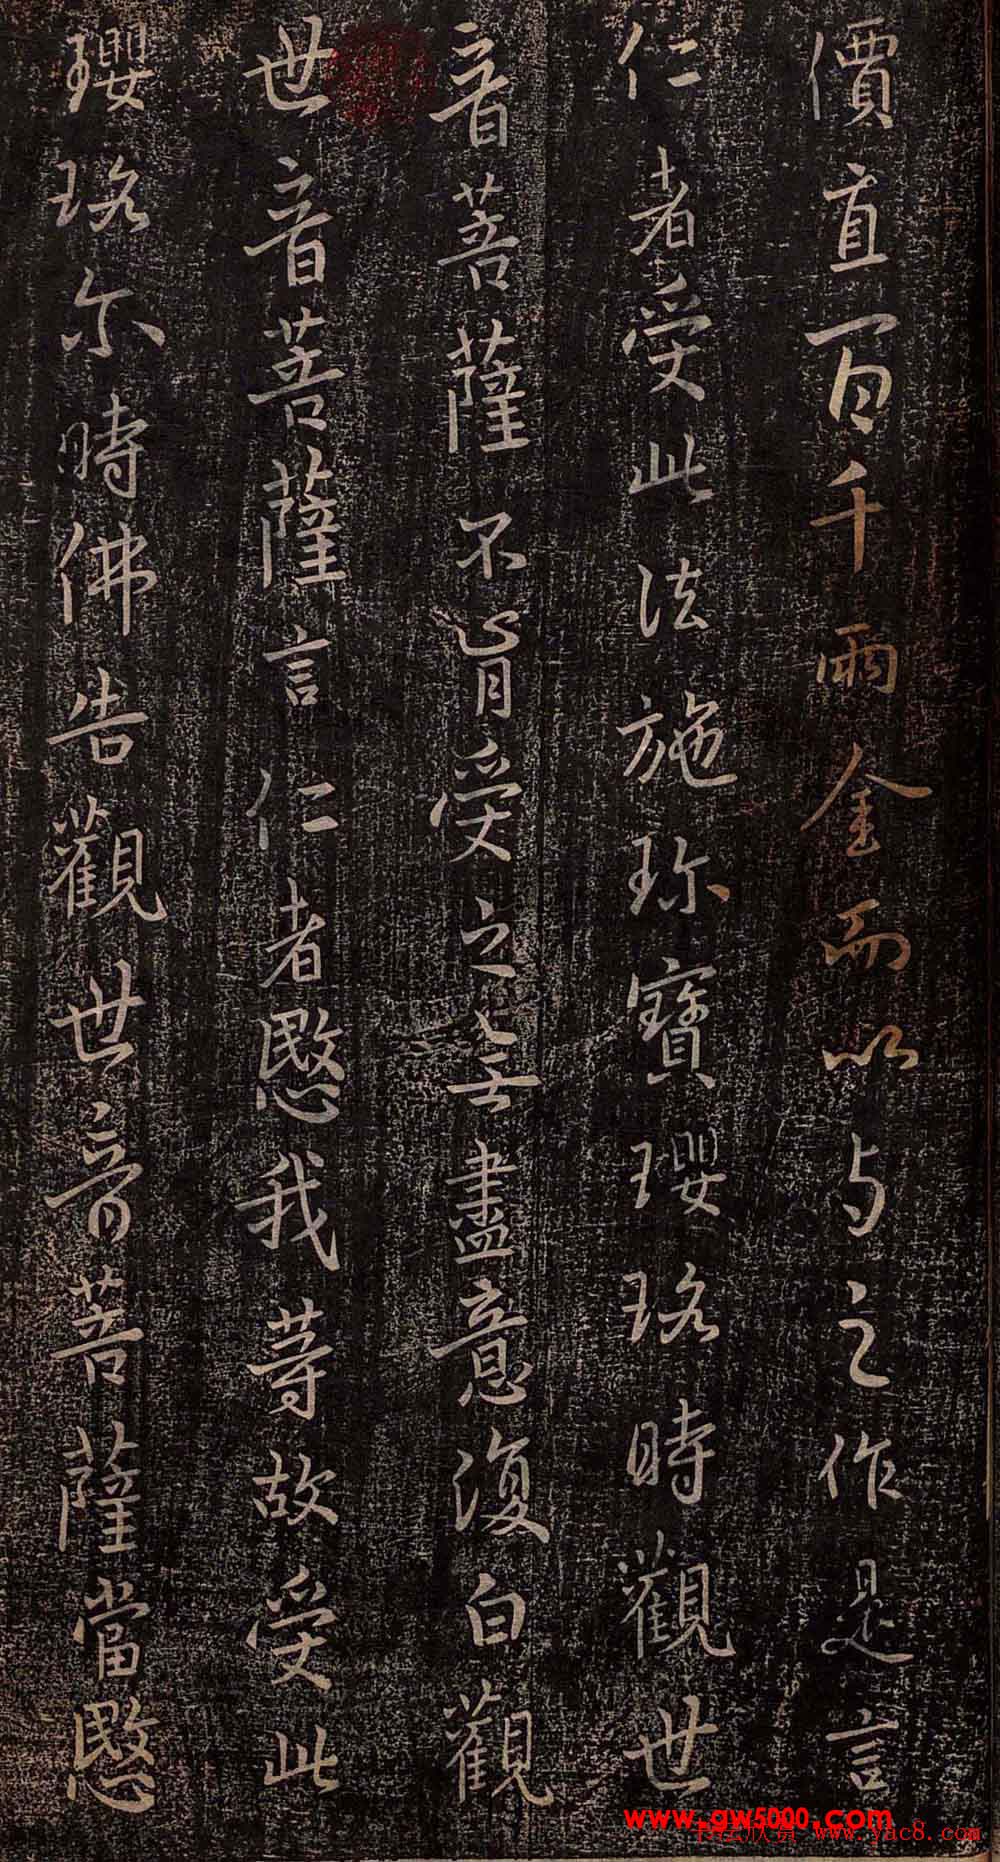 價直百千兩金而以与之作是言
仁者受此法施珎寶瓔珞時觀世
音菩薩不肯受之無盡意復白觀
世音菩薩言仁者愍我等故受此
瓔珞尒時佛告觀世音菩薩當愍
www.gw5000.com
书法欣赏 www.yac8.com